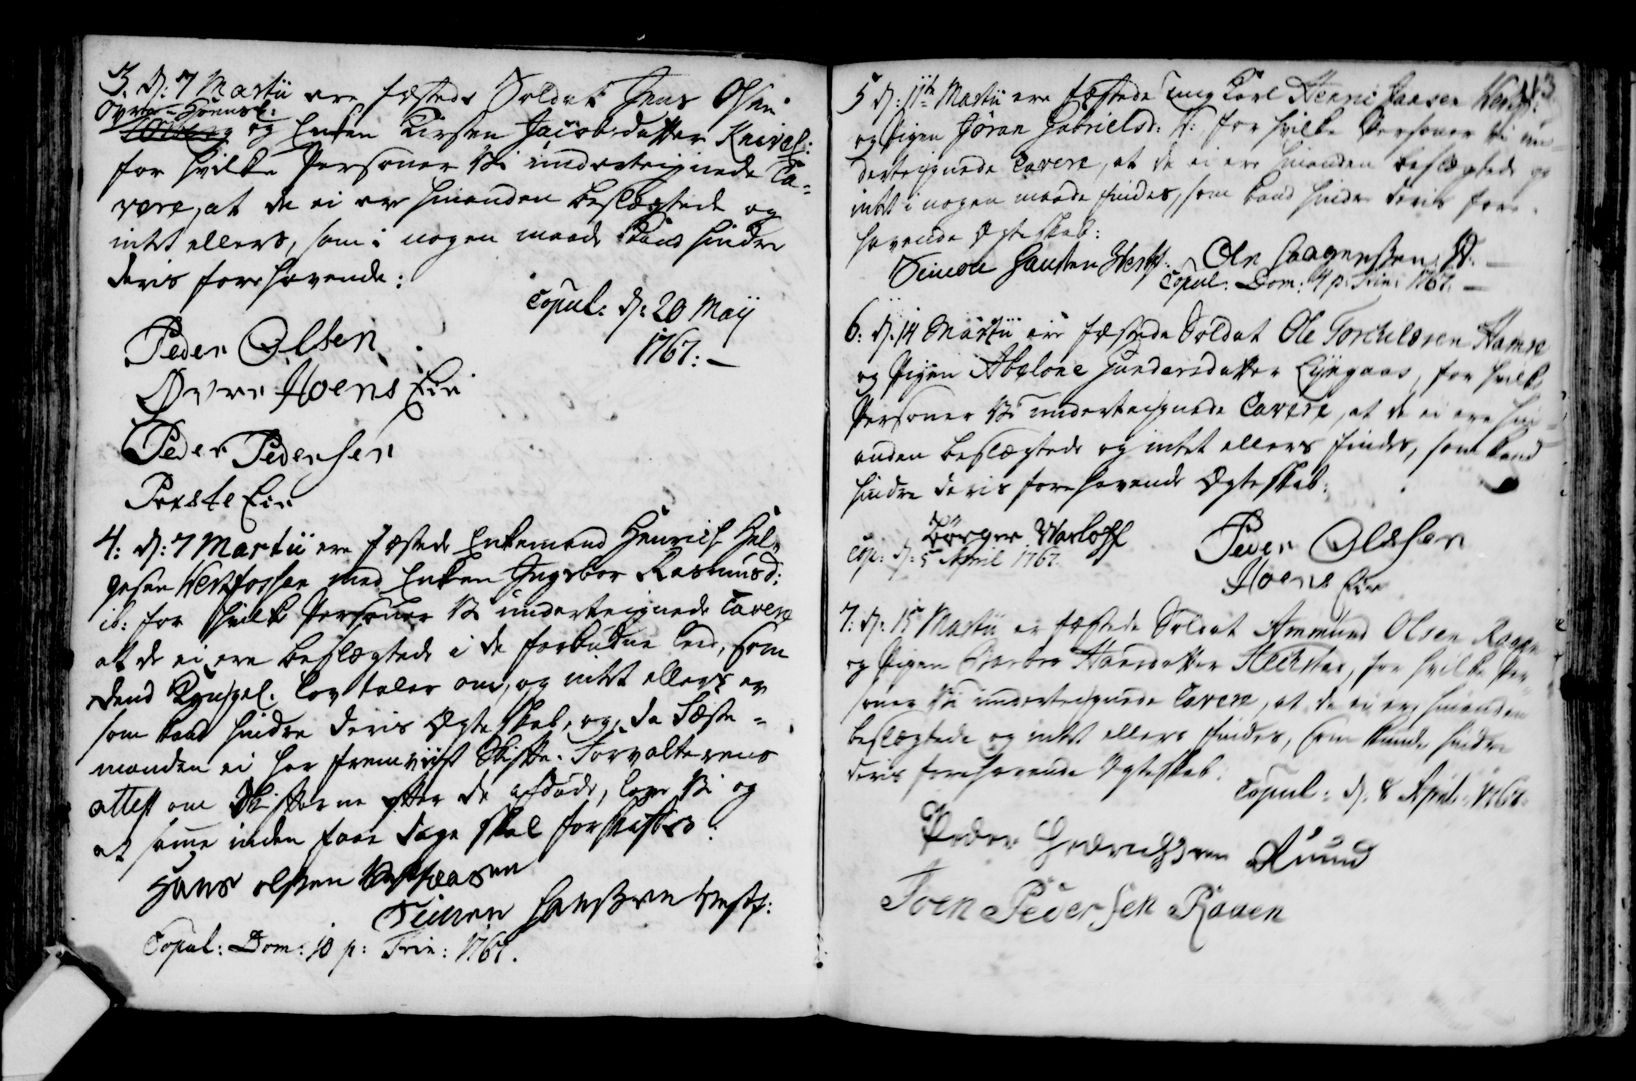 3. d: 7 Martii ere fæstede Soldat Jens Olsen
Øvre-Hoensei:
og Enken Kirsten Jacobsdatter Knivel:
for hvilke Personer vi undertegnede Ca-
vere, at de ei ere hinanden beslægtede og
intet ellers, som i nogen maade kand hindre
deris forehavende:
Copul: d: 20 Maij
1767:
Peder Olsen
Øvre Hoens Eie
Peder Pedersen
Præste Eie
4: d: 7 Martii ere fæstede Enkemand Henrich Hel-
gesen Vestfossen med Enken Ingebor Rasmusd:
ib: for hvilke Personer vi undertegnede Cavere
at de ei ere beslægtede i de forbudne leed, som
dend Kongel. lov taler om, og intet ellers er
som kand hindre deris Ægteskab, og da Fæste-
manden ei har fremviist Skifte-Forvalterens
attest om Skifterne efter de afdøde, love vi og
at samme inden faae dage skal forskaffes:
Hans olsen
Simen Hanssen Vestf:
Copul: Dom: 10 p: Trin: 1767.
113
5 d: 11te Martii ere fæstede ung Karl Henric Hansen Vestf:
og Pigen Jøran Gabrielsd: V: for hvilke Personer vi un-
dertegnede Cavere, at de ei ere hinanden beslægtede og
intet i nogen maade findes, som kand hindre deris fore-
havende Ægteskab:
Simon Hansen Vestf: Ole Haagensen V:
Copul: Dom: 4 p: Trin: 1767.
6: d: 14 Martii ere fæstede Soldat Ole Torchilsen Hamre
og Pigen Abelone Gundersdatter Lyngaas, for hvilke
Personer vi undertegnede Cavere, at de ei ere hin-
anden beslægtede og intet ellers findes, som kand
hindre deris forehavende Ægteskab:
Børger Warlohf
Cop: d: 5 April 1767.
Peder Olesen
Hoens Eie
7: d: 15 Martii er fæstede Soldat Ammund Olsen Raaen
og Pigen Barbro Hansdatter, for hvilke Per-
soner vi undertegnede Cavere, at de ei ere hinanden
beslægtede og intet ellers findes, som kunde hindre
deris forehavende Ægteskab.
Copul: d: 8 April: 1767.
Peder Hedrichsen Ruud
Joen Pedersen Raaen